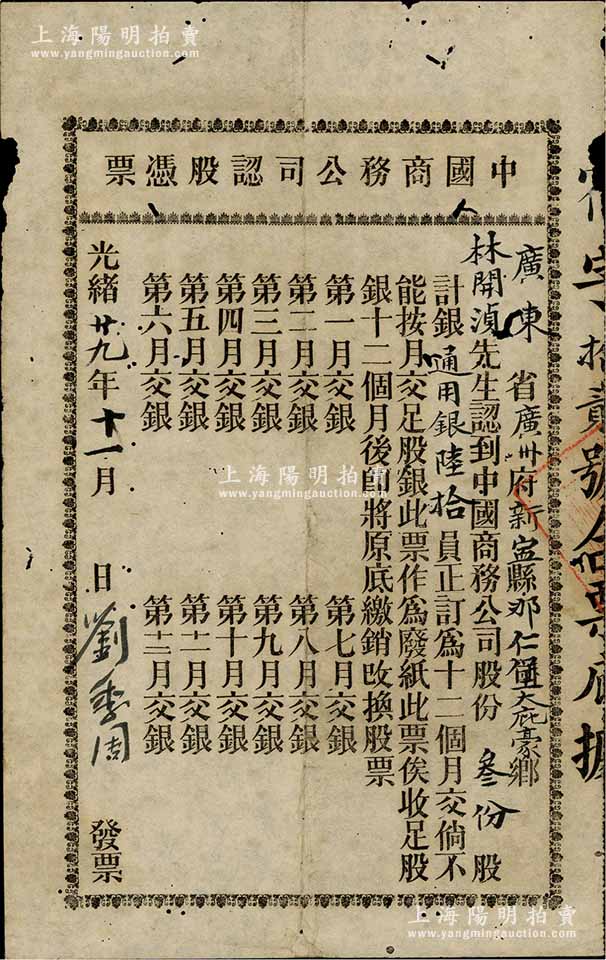 上海陽明拍賣
www.yangmingauction.com
上海陽明拍賣
www.yangmingauction.com
中國商務公司認股憑票
字拾貳號
票底據
廣東省廣州府新寧縣那仁堡大庇豪鄉
林開湞先生認到中國商務公司股份叄份股
計銀通用銀陸拾員正訂為十二個月交倘不
能按月交足股銀此票作為廢紙此票俟收足股
銀十二個月後即將原底繳銷改換股票
第一月交銀 第七月交銀
第二月交銀 第八月交銀
第三月交銀 第九月交銀
第四月交銀 第十月交銀
第五月交銀 第十一月交銀
第六月交銀 第十二月交銀
光緒廿九年十一月 日劉季周 發票
上海陽明拍賣
www.yangmingauction.com
上海陽明拍賣
www.yangmingauction.com